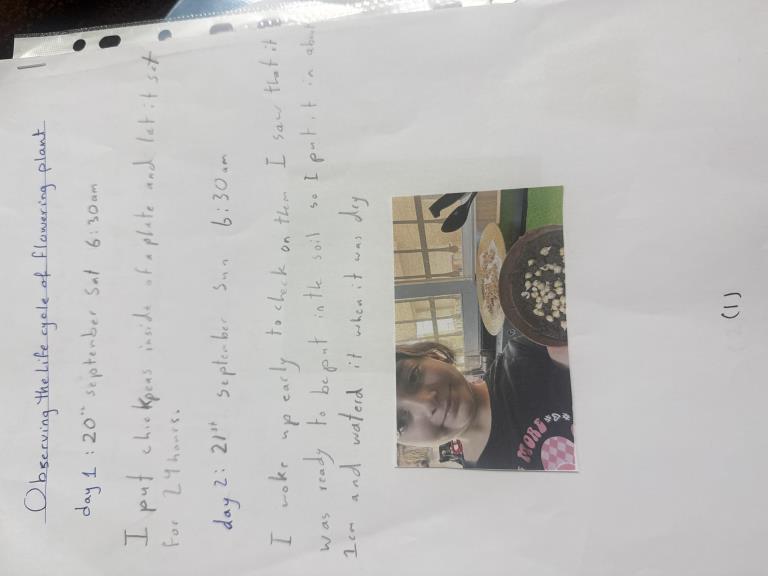 Observing the life cycle of flowering plant
day 1 : 20th september Sat 6:30am
I put chickpeas inside of a plate and let it set
for 24 hours.
day 2 : 21th september Sun 6:30am
I woke up early to check on them I saw that it
was ready to be put in the soil so I put it in about
1cm and waterd it when it was dry
MORE
(1)